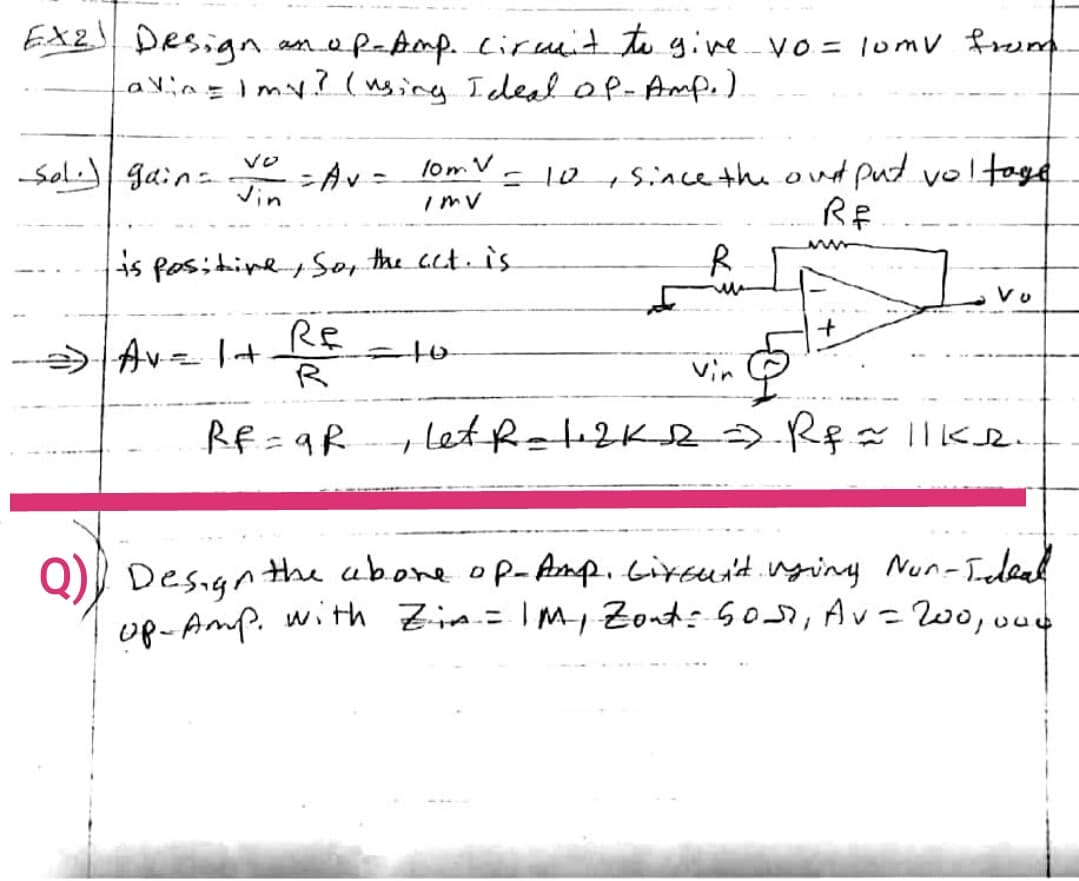 EX2) Design an op-Amp. circuit to give vo = 10mV from
a Vin = 1mv? (using Ideal op-Amp.)
Sol.) gain = vo/Vin = Av = 10mV/1mV = 10 , since the output voltage
is positive, So, the cct. is
RF
R
-
+
Vo
Vin
⇒ Av = 1 + RF/R = 10
RF = 9R , Let R = 1.2K Ω ⇒ RF ≈ 11KΩ.
Q) Design the above op-Amp. Circuit using Non-Ideal
op-Amp. with Zin = 1M, Zout = 50Ω, Av = 200,000